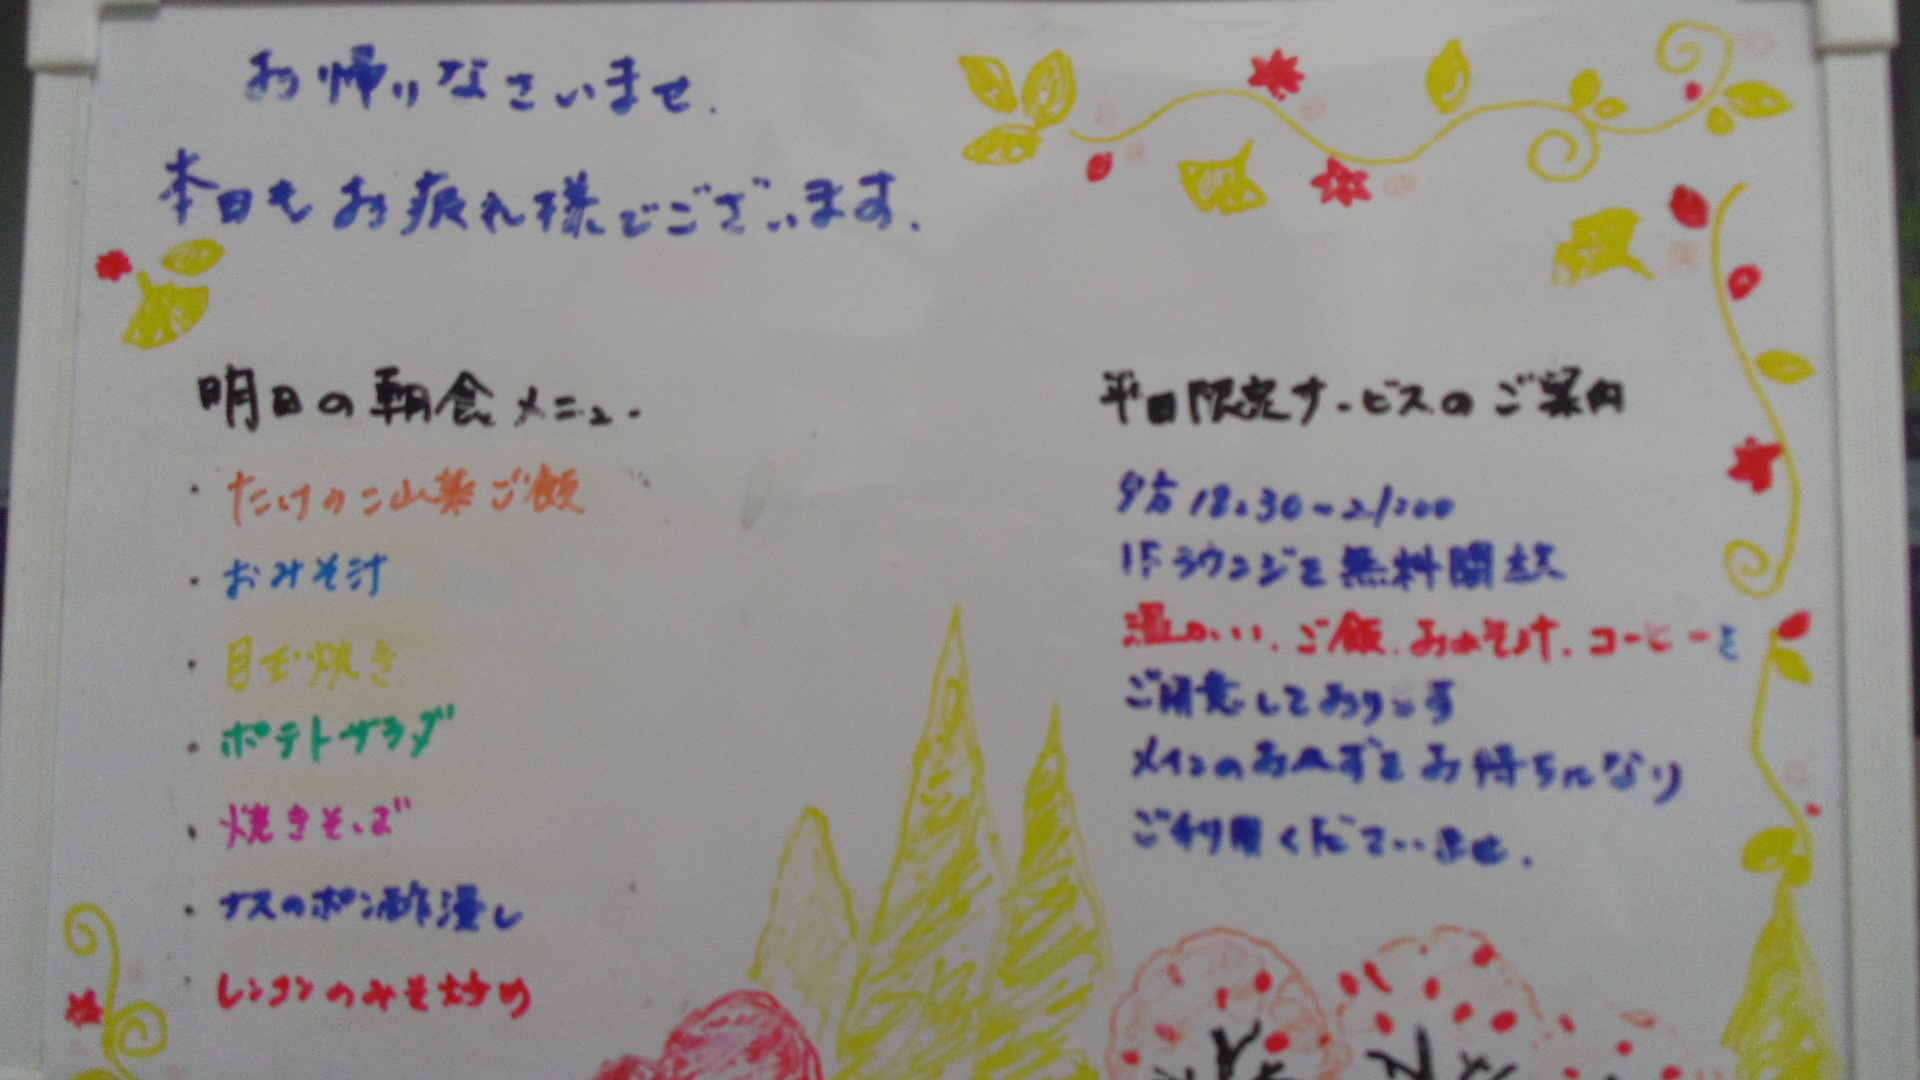 お帰りなさいませ.
本日もお疲れ様でございます.
明日の朝食メニュー
・たけのこ山菜ご飯
・おみそ汁
・目玉焼き
・ポテトサラダ
・焼きそば
・ナスのポン酢浸し
・レンコンのみそ炒め
平日限定サービスのご案内
夕方 18:30~21:00
1Fラウンジを無料開放
温かい、ご飯、おみそ汁、コーヒーを
ご用意しております
メインのおかずをお持ちになり
ご利用くださいませ.